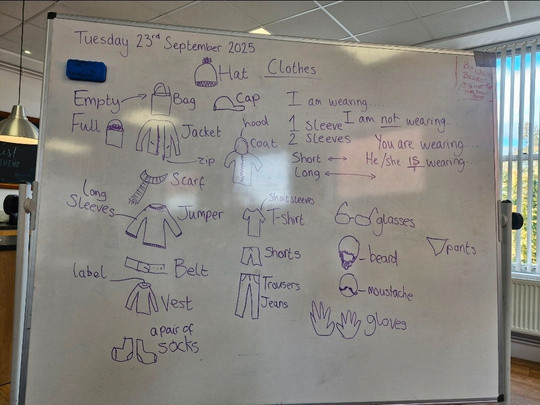 Tuesday 23rd September 2025
Hat
Clothes
Empty
Bag
Cap
I am wearing...
Full
Jacket
hood
Coat
1 sleeve
2 sleeves
I am not wearing...
You are wearing...
zip
Short
He/she is wearing...
Long
Scarf
Long
Sleeves
Jumper
Short sleeves
T-shirt
glasses
pants
Shorts
beard
label
Belt
Trousers
Jeans
moustache
Vest
gloves
a pair of
socks